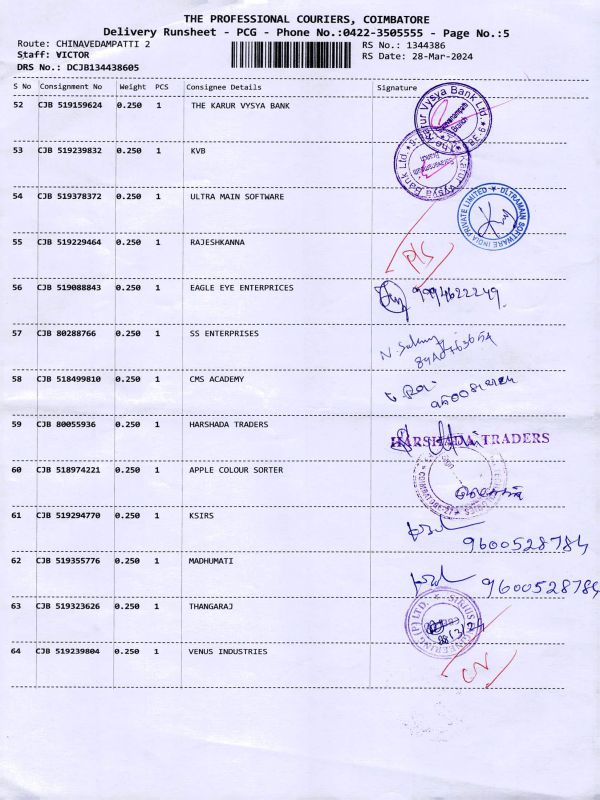 THE PROFESSIONAL COURIERS, COIMBATORE
Delivery Runsheet - PCG - Phone No.:0422-3505555 - Page No.:5
Route: CHINAVEDAMPATTI 2 RS No.: 1344386
Staff: VICTOR RS Date: 28-Mar-2024
DRS No.: DCJB134438605
S No Consignment No Weight PCS Consignee Details Signature
52 CJB 519159624 0.250 1 THE KARUR VYSYA BANK
Karur Vysya Bank Ltd.
53 CJB 519239832 0.250 1 KVB
Karur Vysya Bank Ltd.
54 CJB 519378372 0.250 1 ULTRA MAIN SOFTWARE
ULTRAMAIN SOFTWARE INDIA PRIVATE LIMITED
55 CJB 519229464 0.250 1 RAJESHKANNA
56 CJB 519088843 0.250 1 EAGLE EYE ENTERPRICES
9994622249
57 CJB 80288766 0.250 1 SS ENTERPRISES
58 CJB 518499810 0.250 1 CMS ACADEMY
59 CJB 80055936 0.250 1 HARSHADA TRADERS
HARSHADA TRADERS
60 CJB 518974221 0.250 1 APPLE COLOUR SORTER
61 CJB 519294770 0.250 1 KSIRS
9600528784
62 CJB 519355776 0.250 1 MADHUMATI
9600528784
63 CJB 519323626 0.250 1 THANGARAJ
64 CJB 519239804 0.250 1 VENUS INDUSTRIES